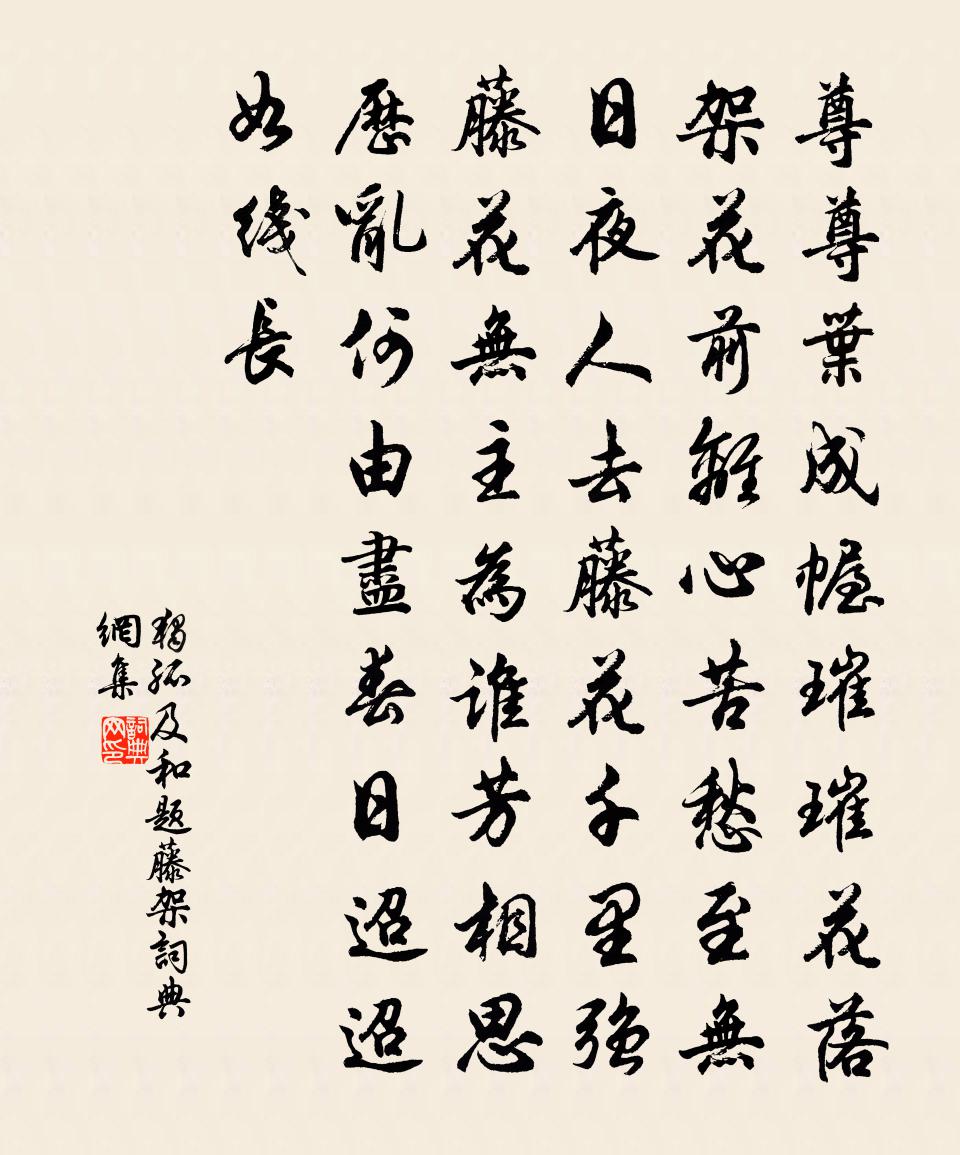 尊尊葉成幄璀璀花落
架花前離心苦愁至無
日夜人去藤花千里強
藤花無主為谁芳相思
歷亂何由盡春日迢迢
如线長
獨孤及和题藤架詞典
網集
詞典网印